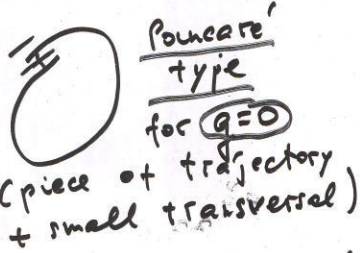 Poincaré
type
for g=0
(piece of trajectory
+ small transversal)